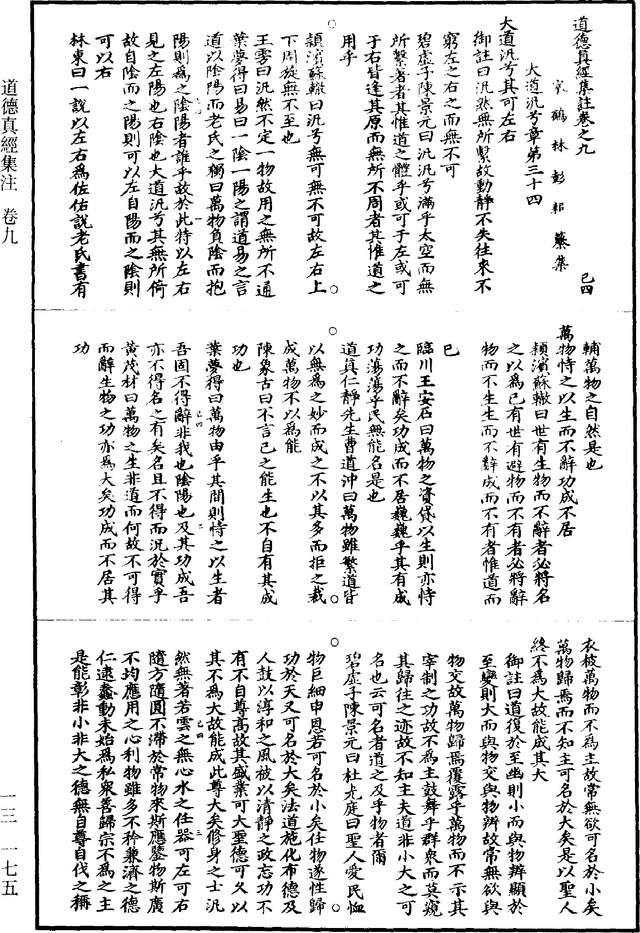 道德真經集註卷之九　己四
宋鶴林彭耜纂集
大道汎兮章第三十四
大道汎兮其可左右
御註曰汎然無所繫故動靜不失往來不
窮左之右之而無不可
碧虛子陳景元曰汎汎兮滿乎太空而無
所繫著者其惟道之體乎或可于左或可
于右皆逢其原而無所不周者其惟道之
用乎
潁濱蘇轍曰汎兮無可無不可故左右上
下周旋無不至也
王雱曰汎然不定一物故用之無所不通
葉夢得曰易曰一陰一陽之謂道易之言
道以陰陽而老氏之獨曰萬物負陰而抱
陽則為之陰陽者誰乎故於此特以左右
見之左陽也右陰也大道汎兮其無所倚
故自陰而之陽則可以左自陽而之陰則
可以右
林東曰一說以左右為佐佑說老氏書有
輔萬物之自然是也
萬物恃之以生而不辭功成不居
潁濱蘇轍曰世有生物而不辭者必將名
之以為己有世有避物而不有者必將辭
物而不生生而不辭成而不有者惟道而
已
臨川王安石曰萬物之資貸以生則亦恃
之而不辭矣功成而不居巍巍乎其有成
功蕩蕩乎民無能名是也
道真仁靜先生曹道沖曰萬物雖繁道皆
以無為之妙而成之不以其多而拒之裁
成萬物不以為能
陳象古曰不言己之能生也不自有其成
功也
葉夢得曰萬物由乎其間則恃之以生者
吾固不得辭非我也陰陽也及其功成吾
亦不得名之有矣名且不得而況於實乎
黃茂材曰萬物之生非道而何故不可得
而辭生物之功亦為大矣功成而不居其
功
衣被萬物而不為主故常無欲可名於小矣
萬物歸焉而不知主可名於大矣是以聖人
終不為大故能成其大
御註曰道復於至幽則小而與物辨顯於
至變則大而與物交與物辨故常無欲與
物交故萬物歸焉覆露乎萬物而不示其
宰制之功故不為主鼓舞乎群衆而莫窺
其歸往之迹故不知主夫道非小大之可
名也云可名者道之及乎物者爾
碧虛子陳景元曰杜光庭曰聖人愛民恤
物巨細申恩若可名於小矣任物遂性歸
功於天又可名於大矣法道施化布德及
人鼓以淳和之風被以清靜之政忘功不
有不自尊高故其盛業可大聖德可久以
其不為大故能成此尊大矣修身之士汎
然無著若雲之無心水之任器可左可右
隨方隨圓不滯於常物來斯應鑒物斯廣
不均應用之心利物雖多不矜兼濟之德
仁逮蠢動未始為私衆善歸宗不為之主
是能彰非小非大之德無自尊自伐之稱
道德真經集注　卷九
一三　一七五